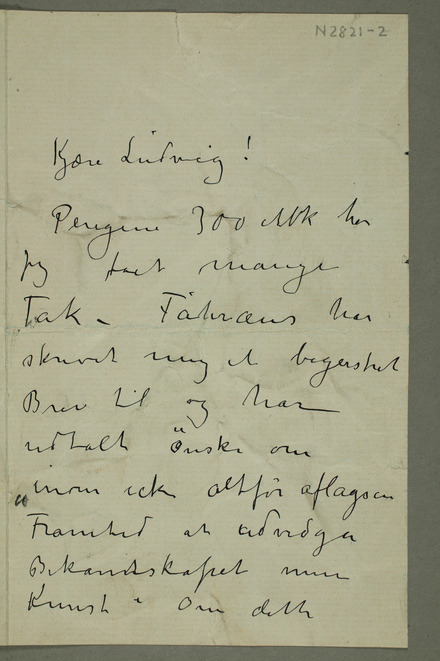 N2821-2
Kjære Ludvig!
Pengene 300 Mk har
jeg faet mange
Tak. Fåhræus har
skrevet mig et begejstret
Brev til og har
udtalt önske om
„inom icke altför aflägsen
Framtid at udvidga
Bekandtskapet min
Kunst" Om dette